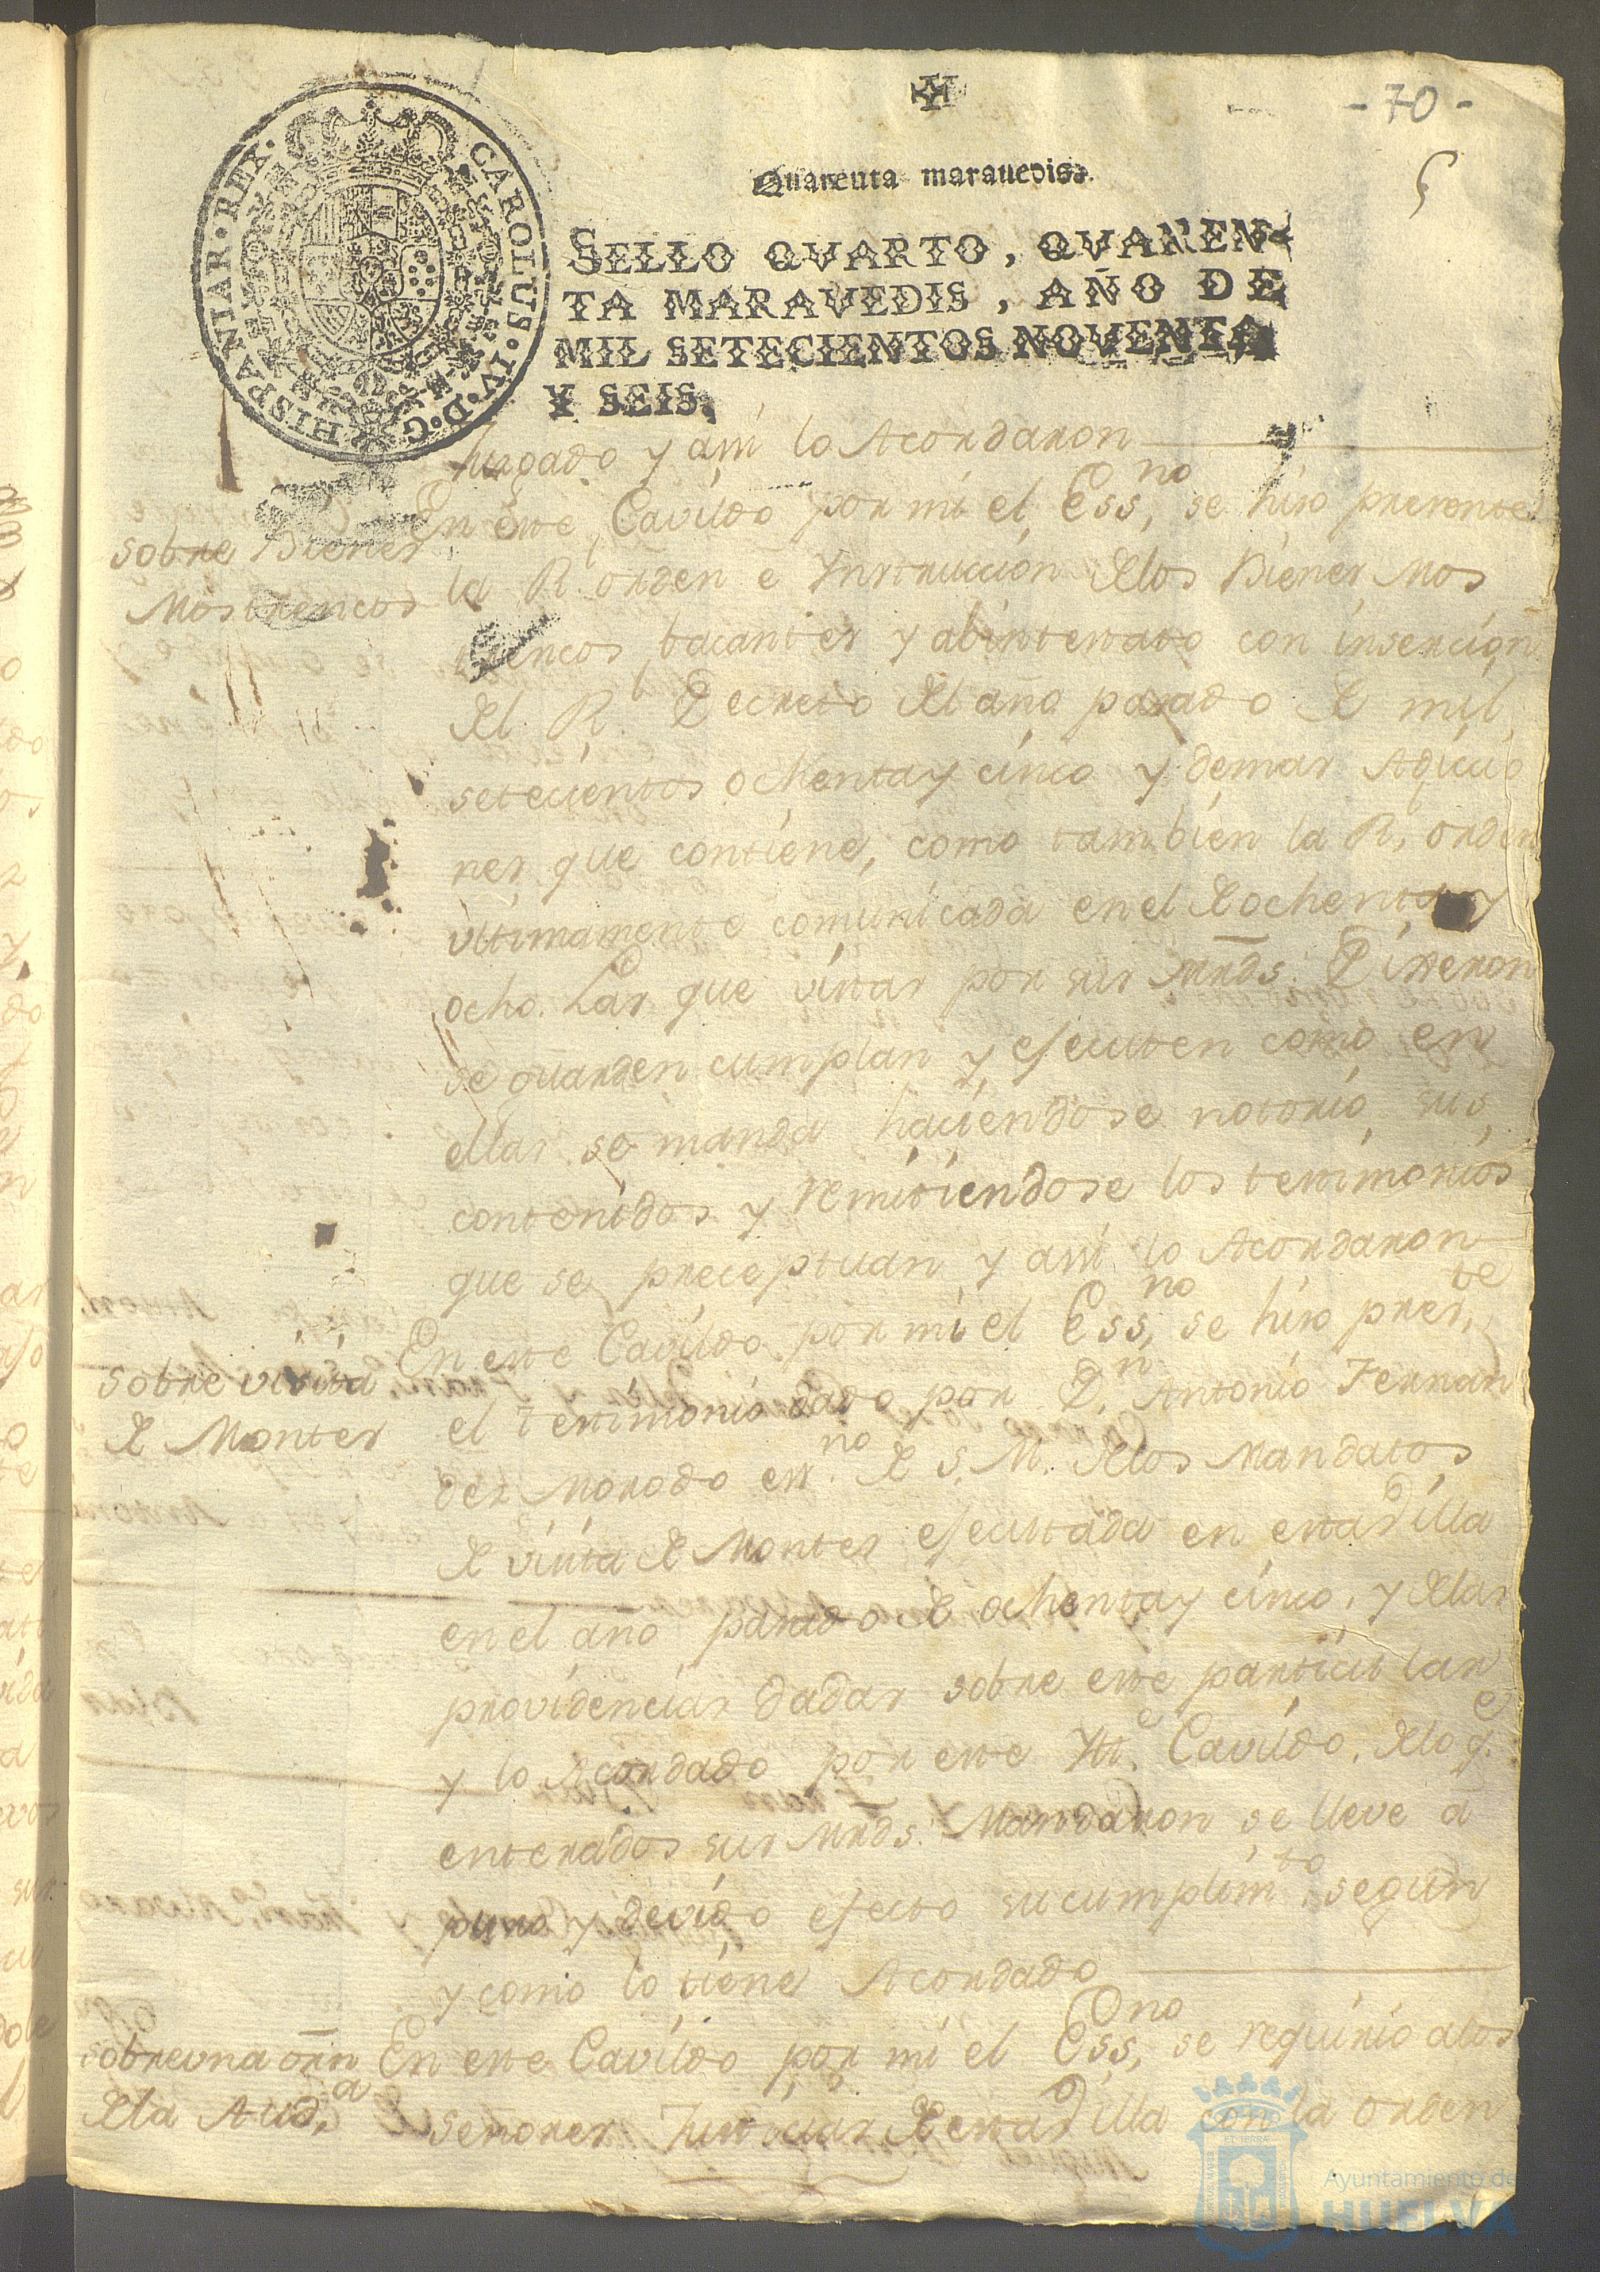 - 70 -
5
Quarenta maravedis.
CAROLUS · IV · D · G · HISPANIAR · REX ·
SELLO QVARTO, QVAREN-
TA MARAVEDIS, AÑO DE
MIL SETECIENTOS NOVENTA
Y SEIS.
Juzgado y assi lo Acordaron
Sobre Bienes
Mostrencos
En este Cavildo por mi el Ess.no se hizo presente
la R. orden e Ynstruccion de los Bienes Mos
trencos, bacantes y abintestato con insercion
del R. Decreto del año pasado de mil
setecientos ochenta y cinco y demas Adicio
nes que contiene, como tambien la R. orden
ultimamente comunicada en el de ochenta y
ocho. Las que vistas por sus Mrds. Dixeron
se guarden cumplan y ejecuten como en
ellas se manda haciendose notorio sus
contenidos y remitiendose los testimonios
que se preceptuan y assi lo Acordaron
Sobre visita
de Montes
En este Cavildo por mi el Ess.no se hizo pres.te
el testimonio dado por D.n Antonio Fernan
dez Morodo ess.no de S. M. de los Mandatos
de visita de Montes ejecutada en esta Villa
en el año pasado de ochenta y cinco, y de las
providencias dadas sobre este particular
y lo Acordado por este Ytt.e Cavildo, de lo q.e
enterados sus Mrds. Mandaron se lleve a
puro y devido efecto su cumplim.to segun
y como lo tiene Acordado
Sobre una orn
de la Aud.a
En este Cavildo por mi el Ess.no se requirio a los
señores Justicias de esta Villa con la orden
Ayuntamiento de
HUELVA